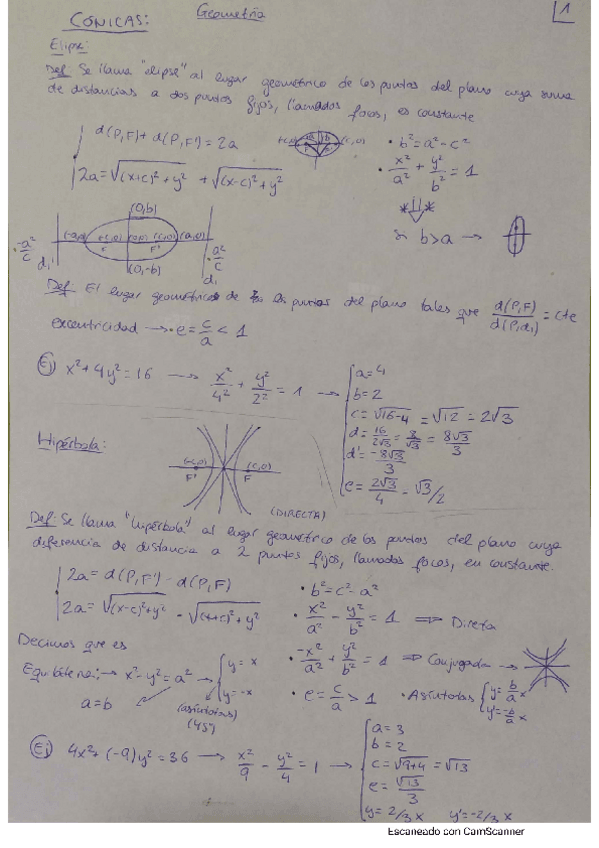 CÓNICAS:
Geometría
1
Elipse:
Def: Se llama "elipse" al lugar geométrico de los puntos del plano cuya suma
de distancias a dos puntos fijos, llamados focos, es constante
d(P,F) + d(P,F') = 2a
2a = √((x+c)²+y²) + √((x-c)²+y²)
(-c,0) (c,0)
· b² = a² - c²
· x²/a² + y²/b² = 1
Si b>a →
(0,b)
(-a,0) (-c,0) (0,0) (c,0) (a,0)
F F'
(0,-b)
-a²/c
d₁'
a²/c
d₁
Def: El lugar geométrico de los puntos del plano tales que d(P,F)/d(P,d₁) = cte
excentricidad → · e = c/a < 1
Ej x² + 4y² = 16 → x²/4² + y²/2² = 1 →
a=4
b=2
c = √16-4 = √12 = 2√3
d = 16/2√3 = 8/√3 = 8√3/3
d' = -8√3/3
e = 2√3/4 = √3/2
Hipérbola:
(-c,0) (c,0)
F' F
(DIRECTA)
Def: Se llama "hipérbola" al lugar geométrico de los puntos del plano cuya
diferencia de distancia a 2 puntos fijos, llamados focos, en constante.
2a = d(P,F') - d(P,F)
2a = √((x-c)²+y²) - √((x+c)²+y²)
· b² = c² - a²
· x²/a² - y²/b² = 1 ⇒ Directa
· -x²/a² + y²/b² = 1 ⇒ Conjugada →
· e = c/a > 1
· Asíntotas y = b/a x
y' = -b/a x
Decimos que es
Equilátera: → x² - y² = a²
y = x
y = -x
a=b
(asíntotas)
(45º)
Ej 4x² + (-9)y² = 36 → x²/9 - y²/4 = 1 →
a = 3
b = 2
c = √9+4 = √13
e = √13/3
y = 2/3 x y' = -2/3 x
Escaneado con CamScanner